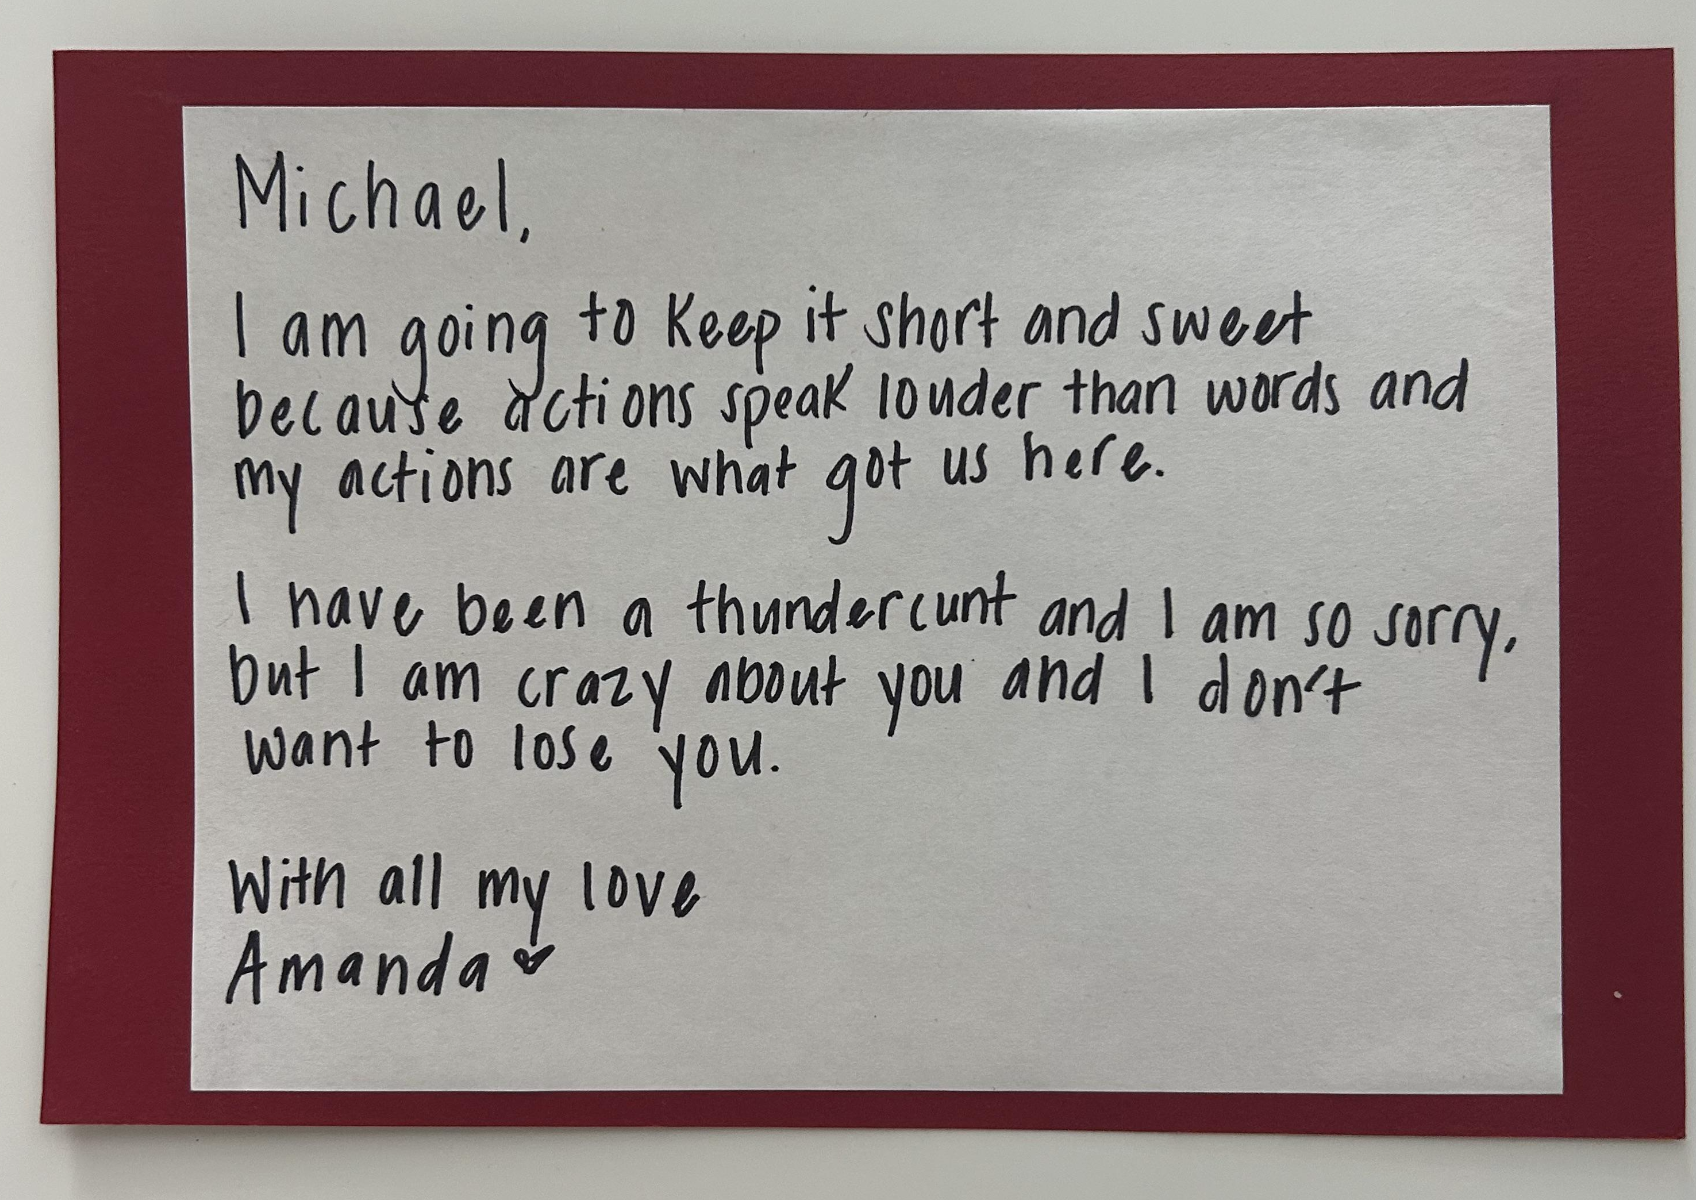 Michael,
I am going to keep it short and sweet
because actions speak louder than words and
my actions are what got us here.
I have been a thundercunt and I am so sorry,
but I am crazy about you and I don't
want to lose you.
With all my love
Amanda ♥